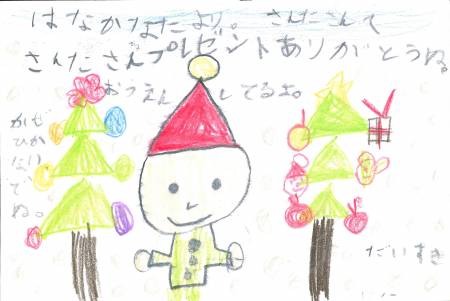 はなかなたより。さんたさんて
さんたさんプレゼントありがとうね。
おうえんしてるよ。
かぜひかないでね。
だいすき